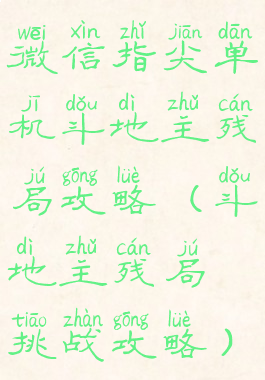 wēi xìn zhǐ jiān dān
微信指尖单
jī dǒu dì zhǔ cán
机斗地主残
jú gōng lüè dǒu
局攻略（斗
dì zhǔ cán jú
地主残局
tiāo zhàn gōng lüè
挑战攻略）